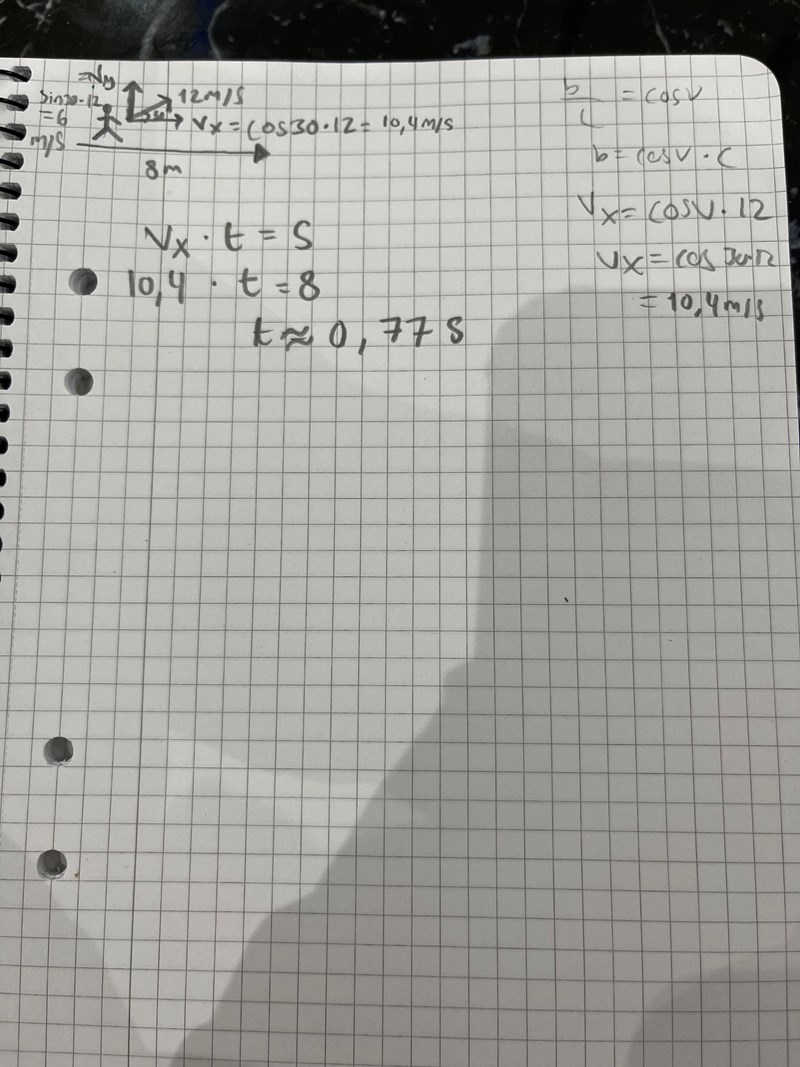 = Vy
Sin30·12
= 6
m/s
12m/s
30
Vx = Cos30·12 = 10,4m/s
8m
Vx · t = S
10,4 · t = 8
t ≈ 0,77 s
b/c = cosv
b = cosv · c
Vx = cosv · 12
Vx = cos30·12
= 10,4m/s